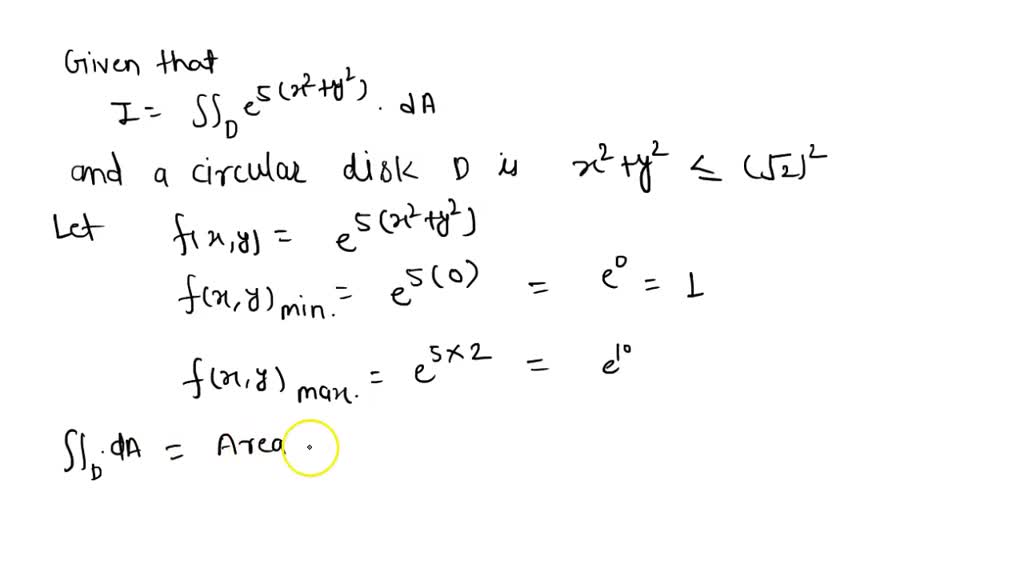 Given that
I = ∬_D e^{5(x²+y²)} . dA
and a circular disk D is x²+y² ≤ (√2)²
Let f(x,y) = e^{5(x²+y²)}
f(x,y)_{min.} = e^{5(0)} = e^0 = 1
f(x,y)_{max.} = e^{5×2} = e^{10}
∬_D . dA = Area